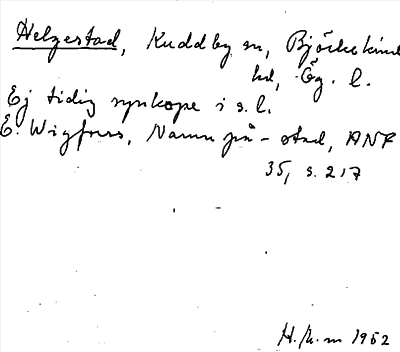 Helgestad, Kuddby sn, Björkekind
hd, Ög. l.
Ej tidig synkope i s. l.
E. Wigforss, Namn på -stad, ANF
35, s. 217
H. 1952